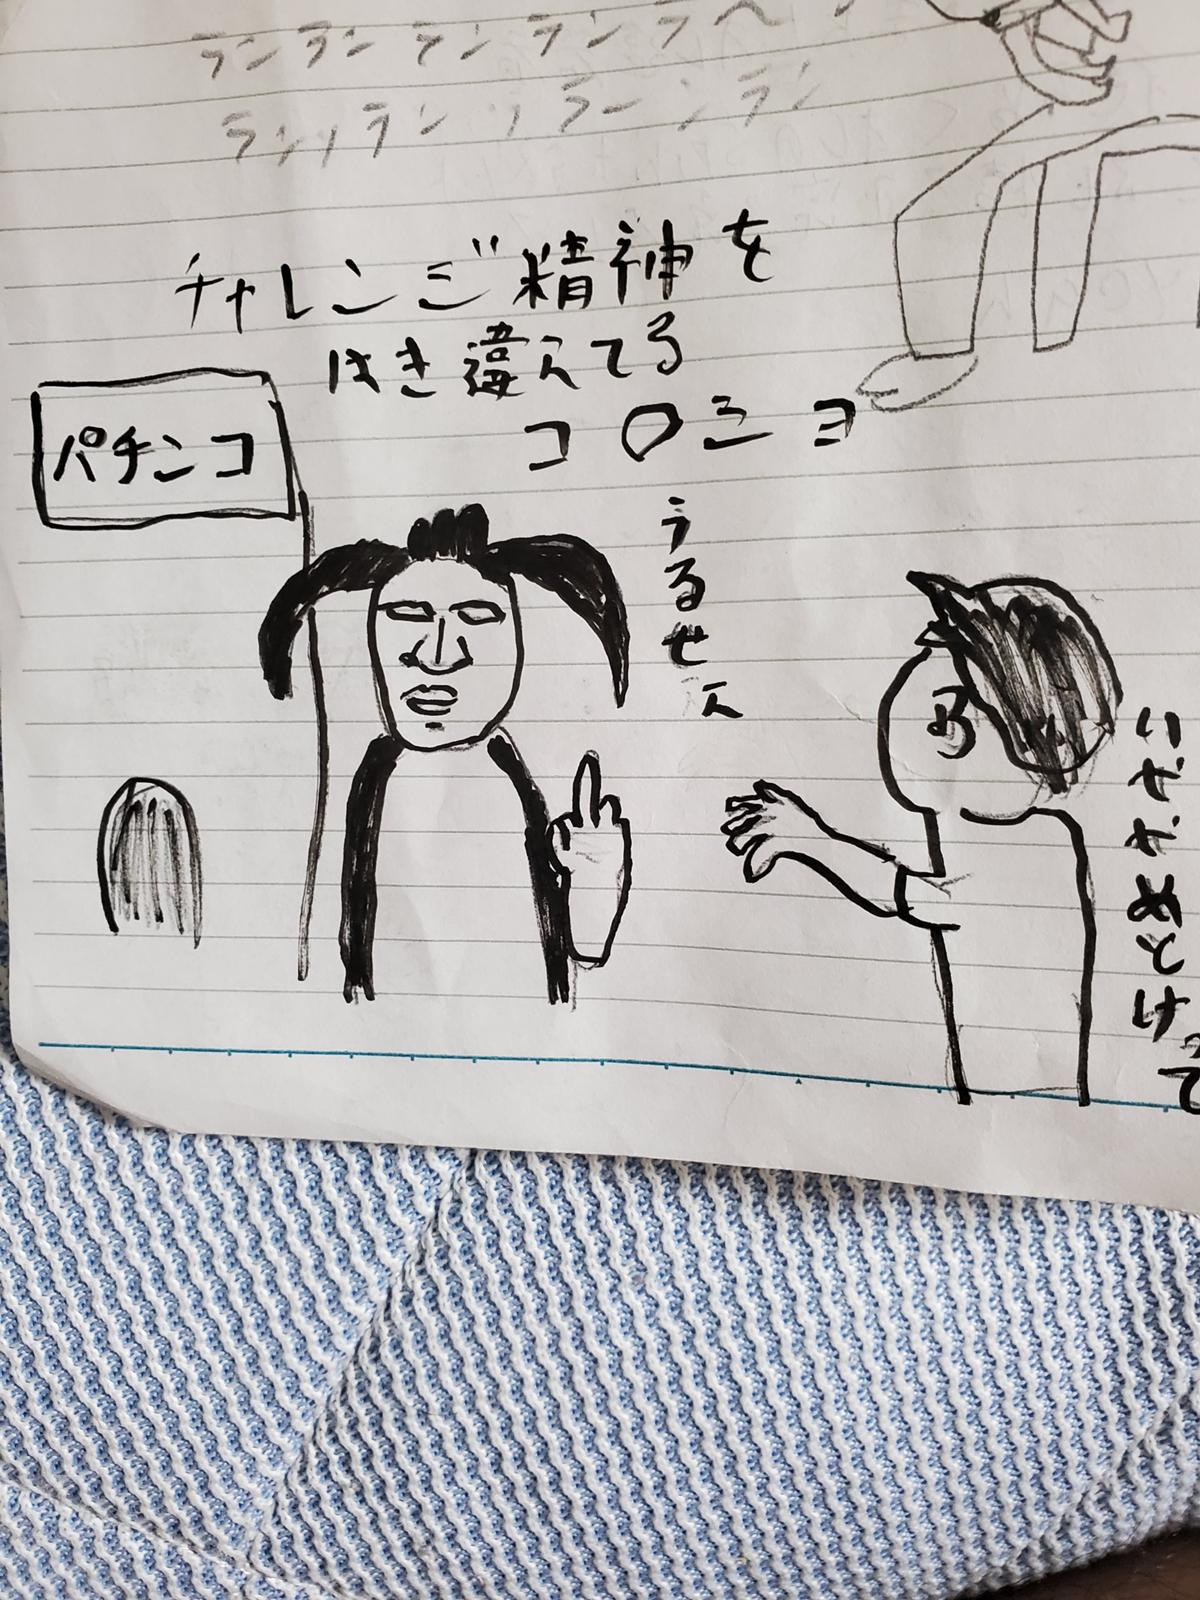 ランランランランラ〜ン
ランッランッラーンラン
チャレンジ精神を
はき違えてる
コロミョ
パチンコ
うるせえ
いややめとけって